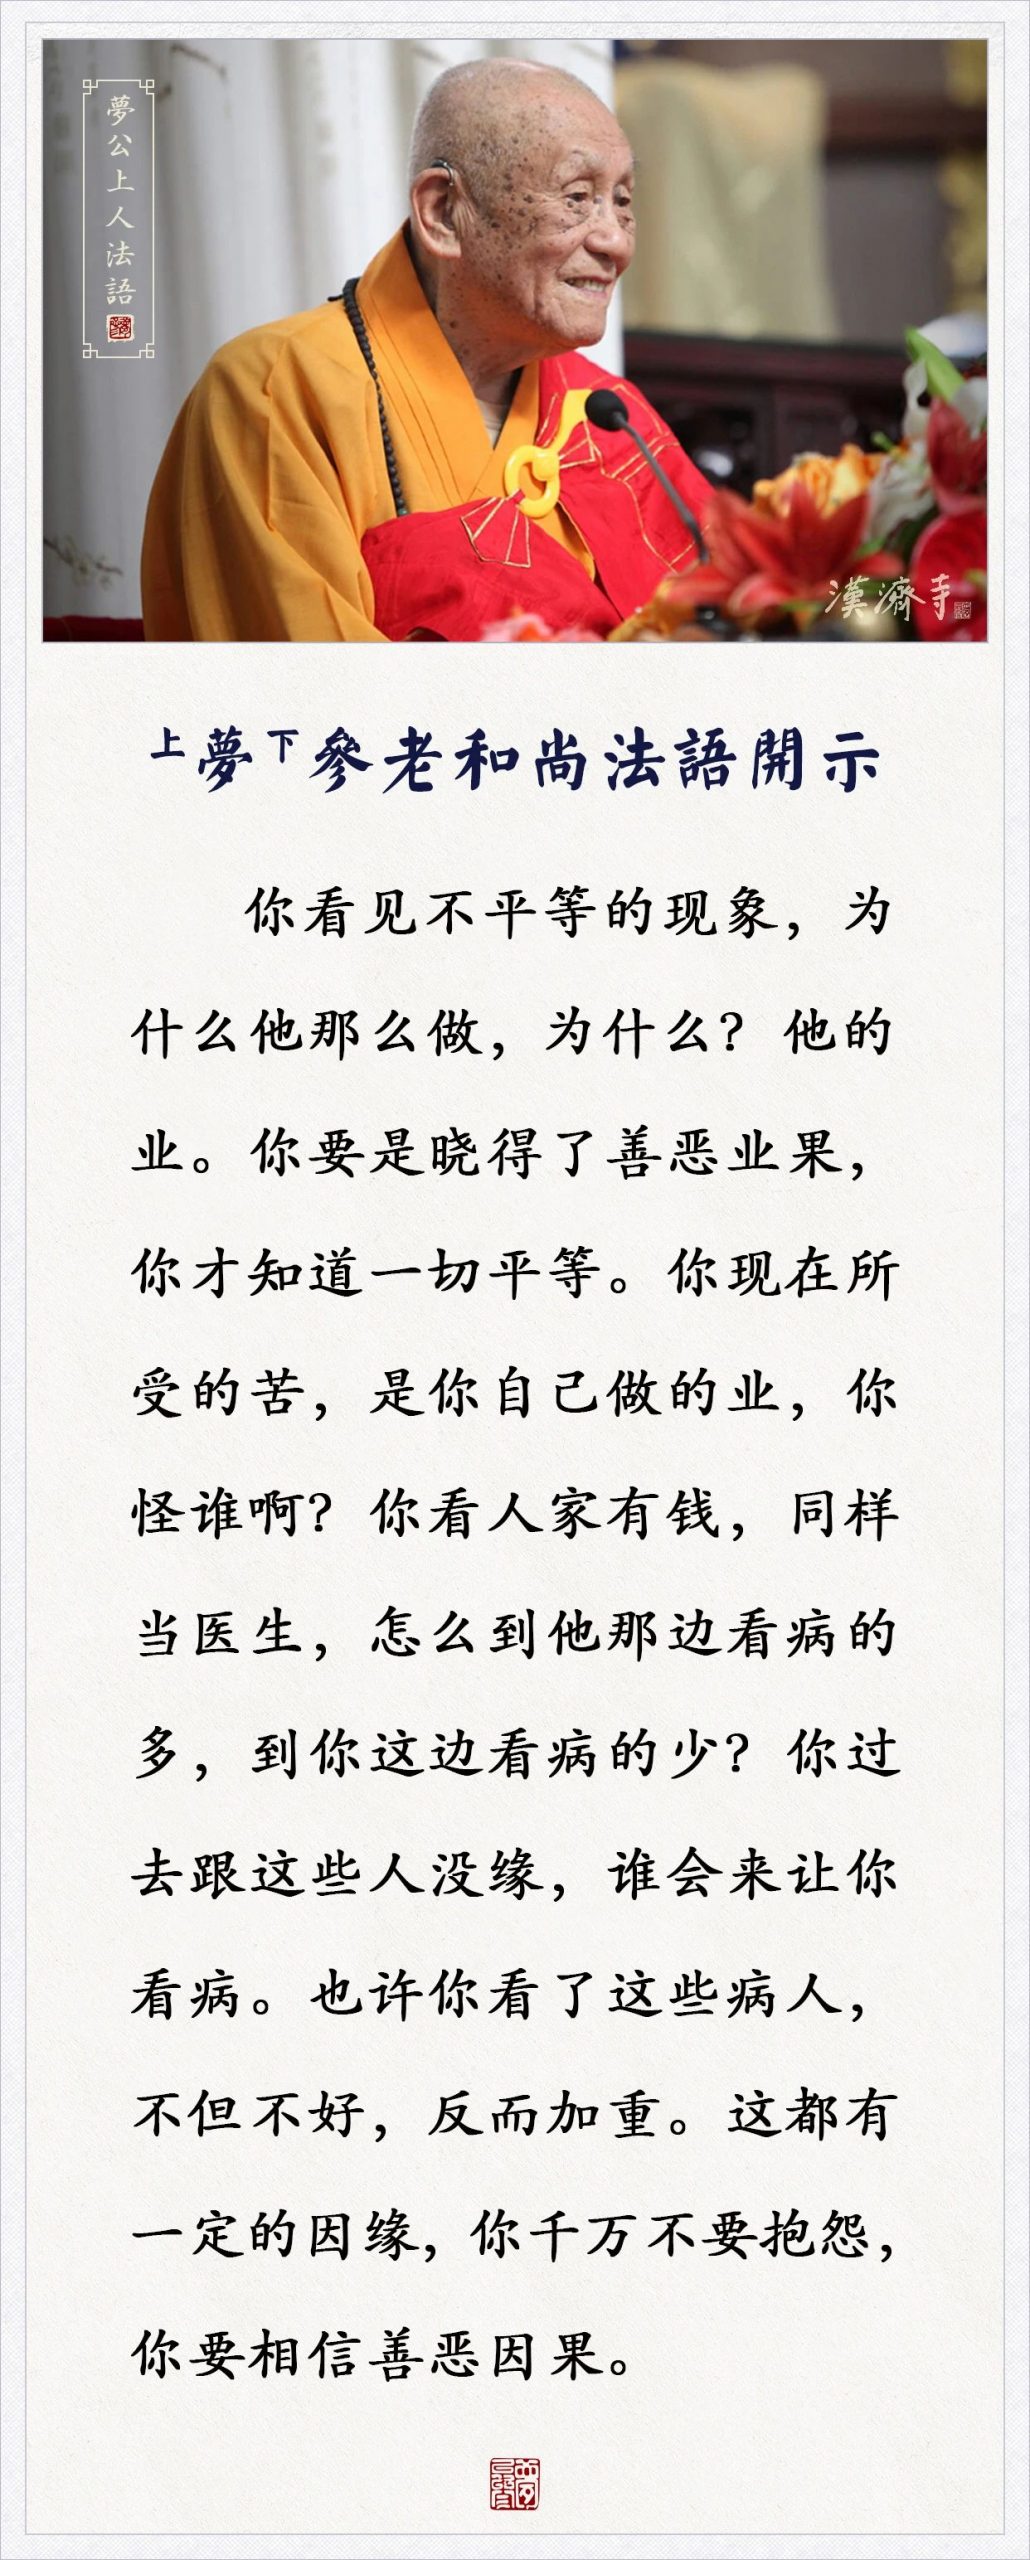 夢公上人法語
漢濟寺
上夢下參老和尚法語開示
你看见不平等的现象，为
什么他那么做，为什么？他的
业。你要是晓得了善恶业果，
你才知道一切平等。你现在所
受的苦，是你自己做的业，你
怪谁啊？你看人家有钱，同样
当医生，怎么到他那边看病的
多，到你这边看病的少？你过
去跟这些人没缘，谁会来让你
看病。也许你看了这些病人，
不但不好，反而加重。这都有
一定的因缘，你千万不要抱怨，
你要相信善恶因果。